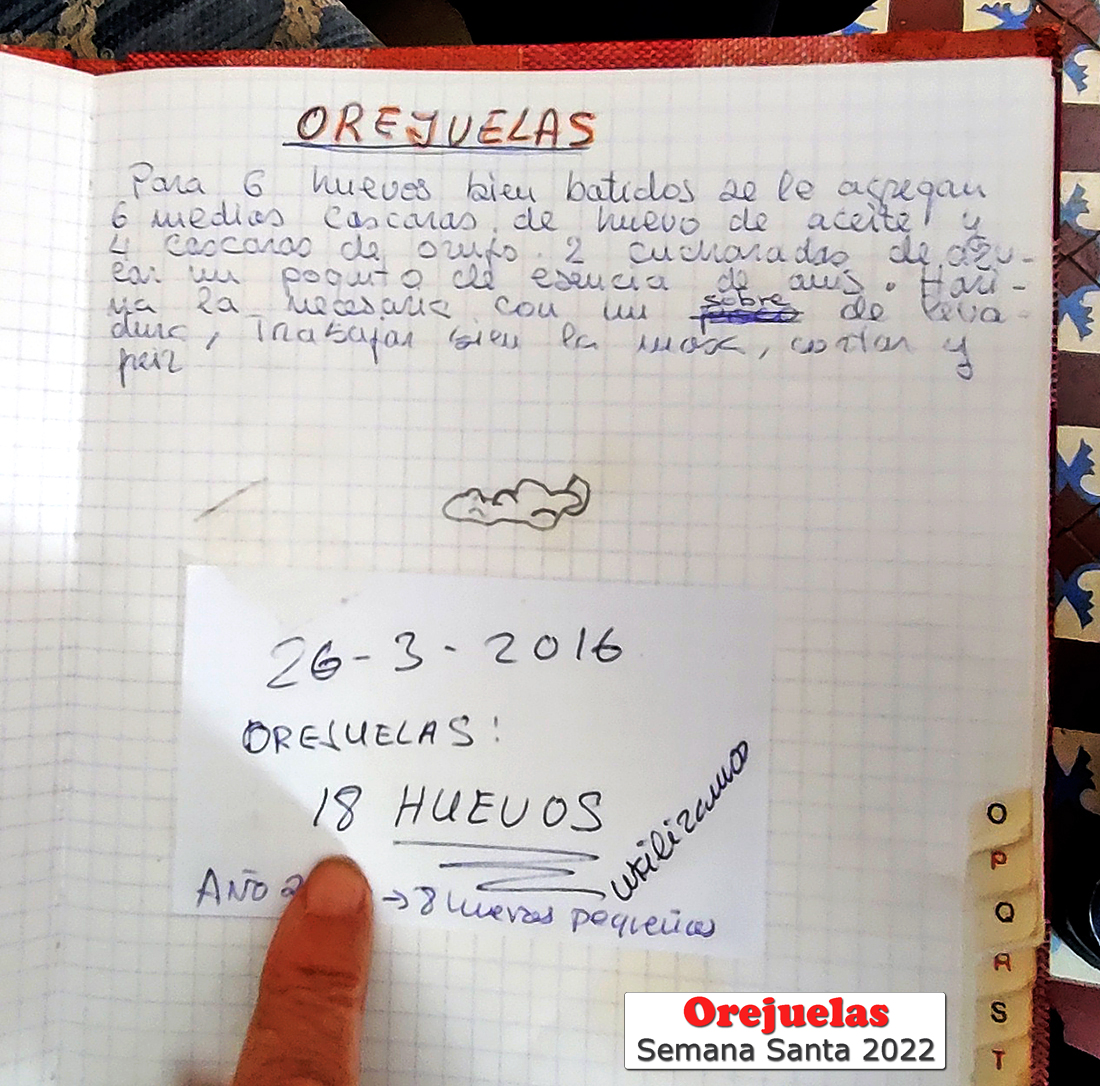 OREJUELAS
Para 6 huevos bien batidos se le agregan
6 medias cascaras de huevo de aceite y
4 cascaras de orujo. 2 cucharadas de azu-
car un poquito de esencia de anis. Hari-
na la necesaria con un sobre de leva-
dura, Trabajar bien la masa, cortar y
freir
26-3-2016
OREJUELAS:
18 HUEVOS
utilizamos
AÑO 2 → 8 huevos pequeños
O
P
Q
R
S
T
Orejuelas
Semana Santa 2022